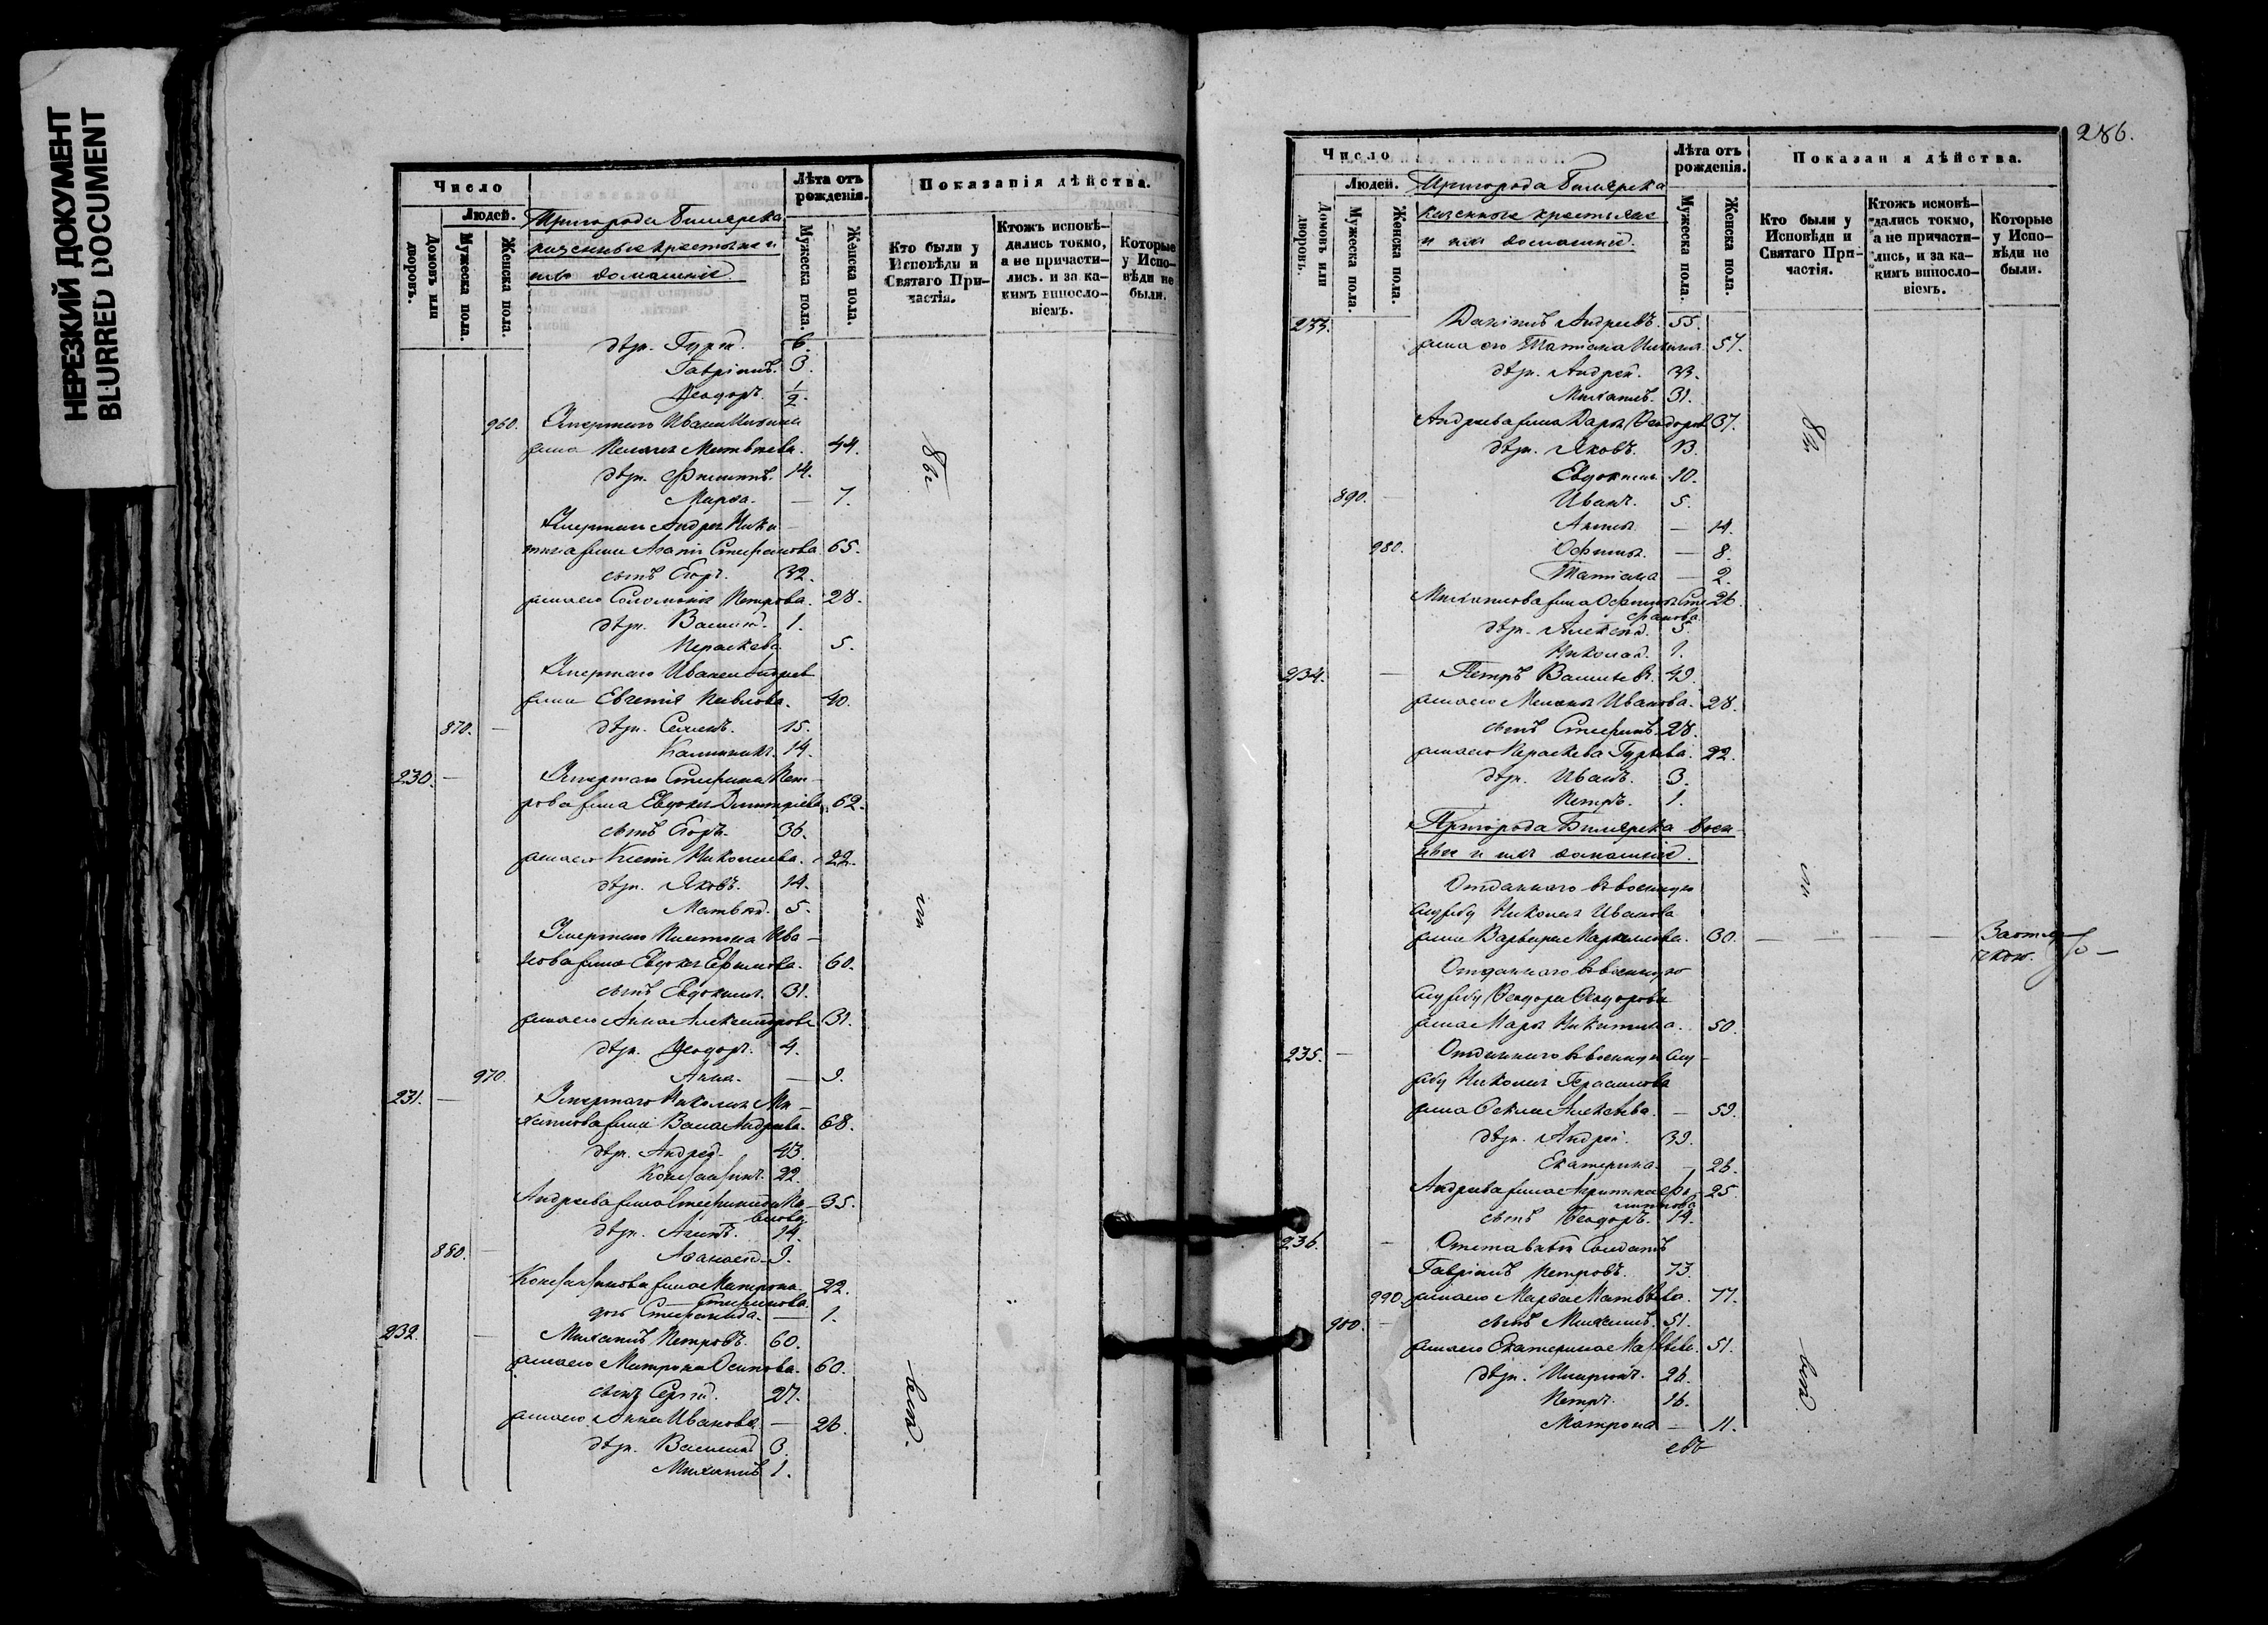 НЕРЕЗКИЙ ДОКУМЕНТ
BLURRED DOCUMENT
Число
Людей.
Домовъ или дворовъ.
Мужеска пола.
Женска пола.
Пригорода Билярска
казенные крестьяне и
ихъ домашніе.
Лѣта отъ рожденія.
Мужеска пола.
Женска пола.
Показанія дѣйства.
Кто были у Исповѣди и Святаго Причастія.
Ктожъ исповѣдались токмо, а не причастились. и за какимъ винословіемъ.
Которые у Исповѣди не были.
дѣти. Гурій. 6.
Гавріилъ. 3.
Ѳеодоръ. 1/2.
960. Умершаго Ивана
жена Пелагея Матвѣева. 44.
дѣти. Филиппъ. 14.
Марѳа. — 7.
Умершаго Андрея Ники-
тина жена Стефанова 65.
сынъ Егоръ. 32.
жена его Соломонія Петрова. 28.
дѣти. Василій. 1.
Параскева. 5.
Умершаго Ивана Андреев
жена Евгенія Павлова. 40.
870. — дѣти. Семенъ. 15.
Калинникъ. 14.
230. — Умершаго Стефана Пет-
рова жена Евдокія Димитріева 62.
сынъ Егоръ. 36.
жена его Ксенія Николаева. 22.
дѣти. Яковъ. 14.
Матвѣй. 5.
Умершаго Платона Ива-
нова жена Евдокія Ефимова. 60.
сынъ Евдокимъ. 31.
жена его Анна Александрова 31.
дѣти. Ѳеодоръ. 4.
970. Анна. — 9.
231. — Умершаго Николая Ми-
хаилова жена Андреева. 68.
дѣти. Андрей. 43.
22.
Андреева жена Стефанида Па- 35.
влова.
дѣти. 14.
880. — Аѳанасій. 9.
жена Матрона. 22.
Стефанова.
дочь Стефанида. — 1.
232. — Михаилъ Петровъ. 60.
жена его Матрона Осипова. 60.
сынъ Сергій. 27.
жена его Анна Иванова. — 26.
дѣти. Василій 3.
Михаилъ 1.
были
286.
Число
Людей.
Домовъ или дворовъ.
Мужеска пола.
Женска пола.
Пригорода Билярска
казенные крестьяне
и ихъ домашніе.
Лѣта отъ рожденія.
Мужеска пола.
Женска пола.
Показанія дѣйства.
Кто были у Исповѣди и Святаго Причастія.
Ктожъ исповѣдались токмо, а не причастились, и за какимъ винословіемъ.
Которые у Исповѣди не были.
233. Даніилъ Андреевъ. 55.
жена его Татіана 57.
дѣти. Андрей. 33.
Михаилъ. 31.
Андреева жена Дарья Ѳеодоров 37.
дѣти. Яковъ. 13.
Евдокимъ. 10.
890. — Иванъ. 5.
— 14.
980. — 8.
Татіана — 2.
Михаилова жена Сте- 26.
фанова.
дѣти. Алексѣй. 5.
Николай. 1.
234. — Петръ Васильевъ. 49.
жена его Меланья Иванова. 28.
сынъ Стефанъ. 28.
жена его Параскева Гурьева. 22.
дѣти. Иванъ. 3.
Петръ. 1.
Пригорода Билярска воен-
ные и ихъ домашніе.
Отданнаго въ военную
службу Николая Иванова
жена Варвара 30. — — — —
Отданнаго въ военную
службу Ѳеодора Ѳеодорова
жена Марья Никитина. 50.
235. — Отданнаго въ военную слу-
жбу Николая Герасимова
жена Алексѣева. — 59.
дѣти. Андрей. 39.
Екатерина. — 26.
Андреева жена Фи- 25.
липпова
сынъ Ѳеодоръ. 14.
236. — Отставной Солдатъ
Гавріилъ Петровъ. 73.
990. жена его Марѳа Матвѣева. 77.
900. — сынъ Михаилъ. 51.
жена его Екатерина Матвѣева. 51.
дѣти. Иларіонъ. 26.
Петръ. 16.
Матрона — 11.
были